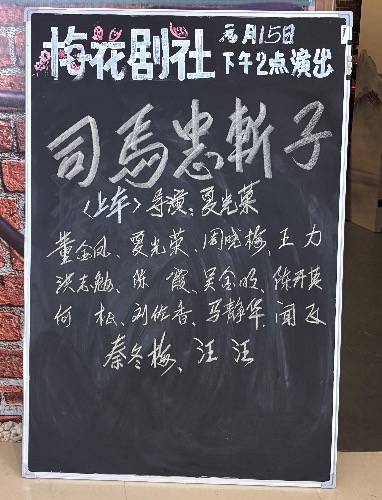 梅花剧社
元月15日
下午2点演出
司马忠斩子
〈上本〉导演：夏光荣
董金凤、夏光荣、周晓梅、王力
洪志勉、陈霞、吴金明、陈开英
何松、刘佐香、马静华、闻及
秦冬梅、汪汪